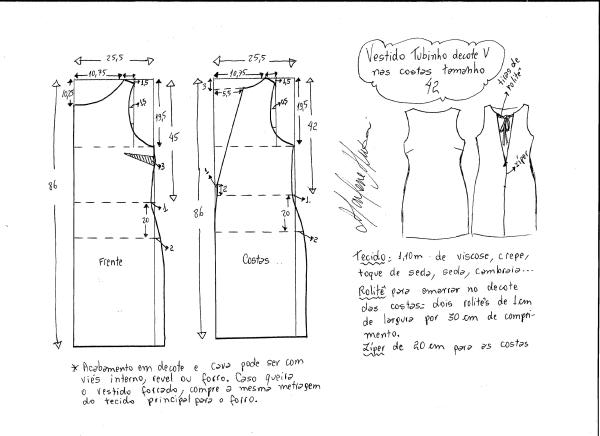 25,5
10,75
10,25
1,5
19,5
45
3
86
1
20
2
Frente
25,5
10,75
3
5,5
1,5
19,5
42
2
86
1
20
2
Costas...
Vestido Tubinho decote V
nas costas tamanho
42
tiras de
rolitê
zíper
Tecido: 1,10m de viscose, crepe,
toque de seda, seda, cambraia...
Rolitê para amarrar no decote
das costas: dois rolitês de 1cm
de largura por 30 cm de compri-
mento.
Zíper de 20 cm para as costas
* Acabamento em decote e cava pode ser com
viés interno, revel ou forro. Caso queira
o vestido forrado, compre a mesma metragem
do tecido principal para o forro.